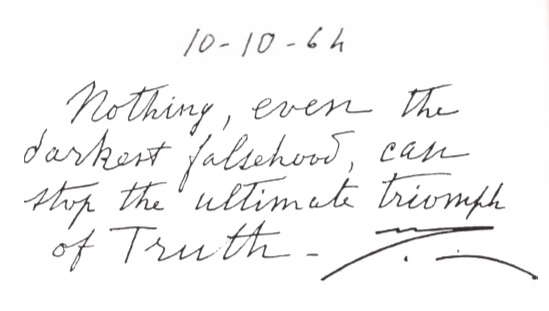 10-10-64
Nothing, even the
darkest falsehood, can
stop the ultimate triomph
of Truth -